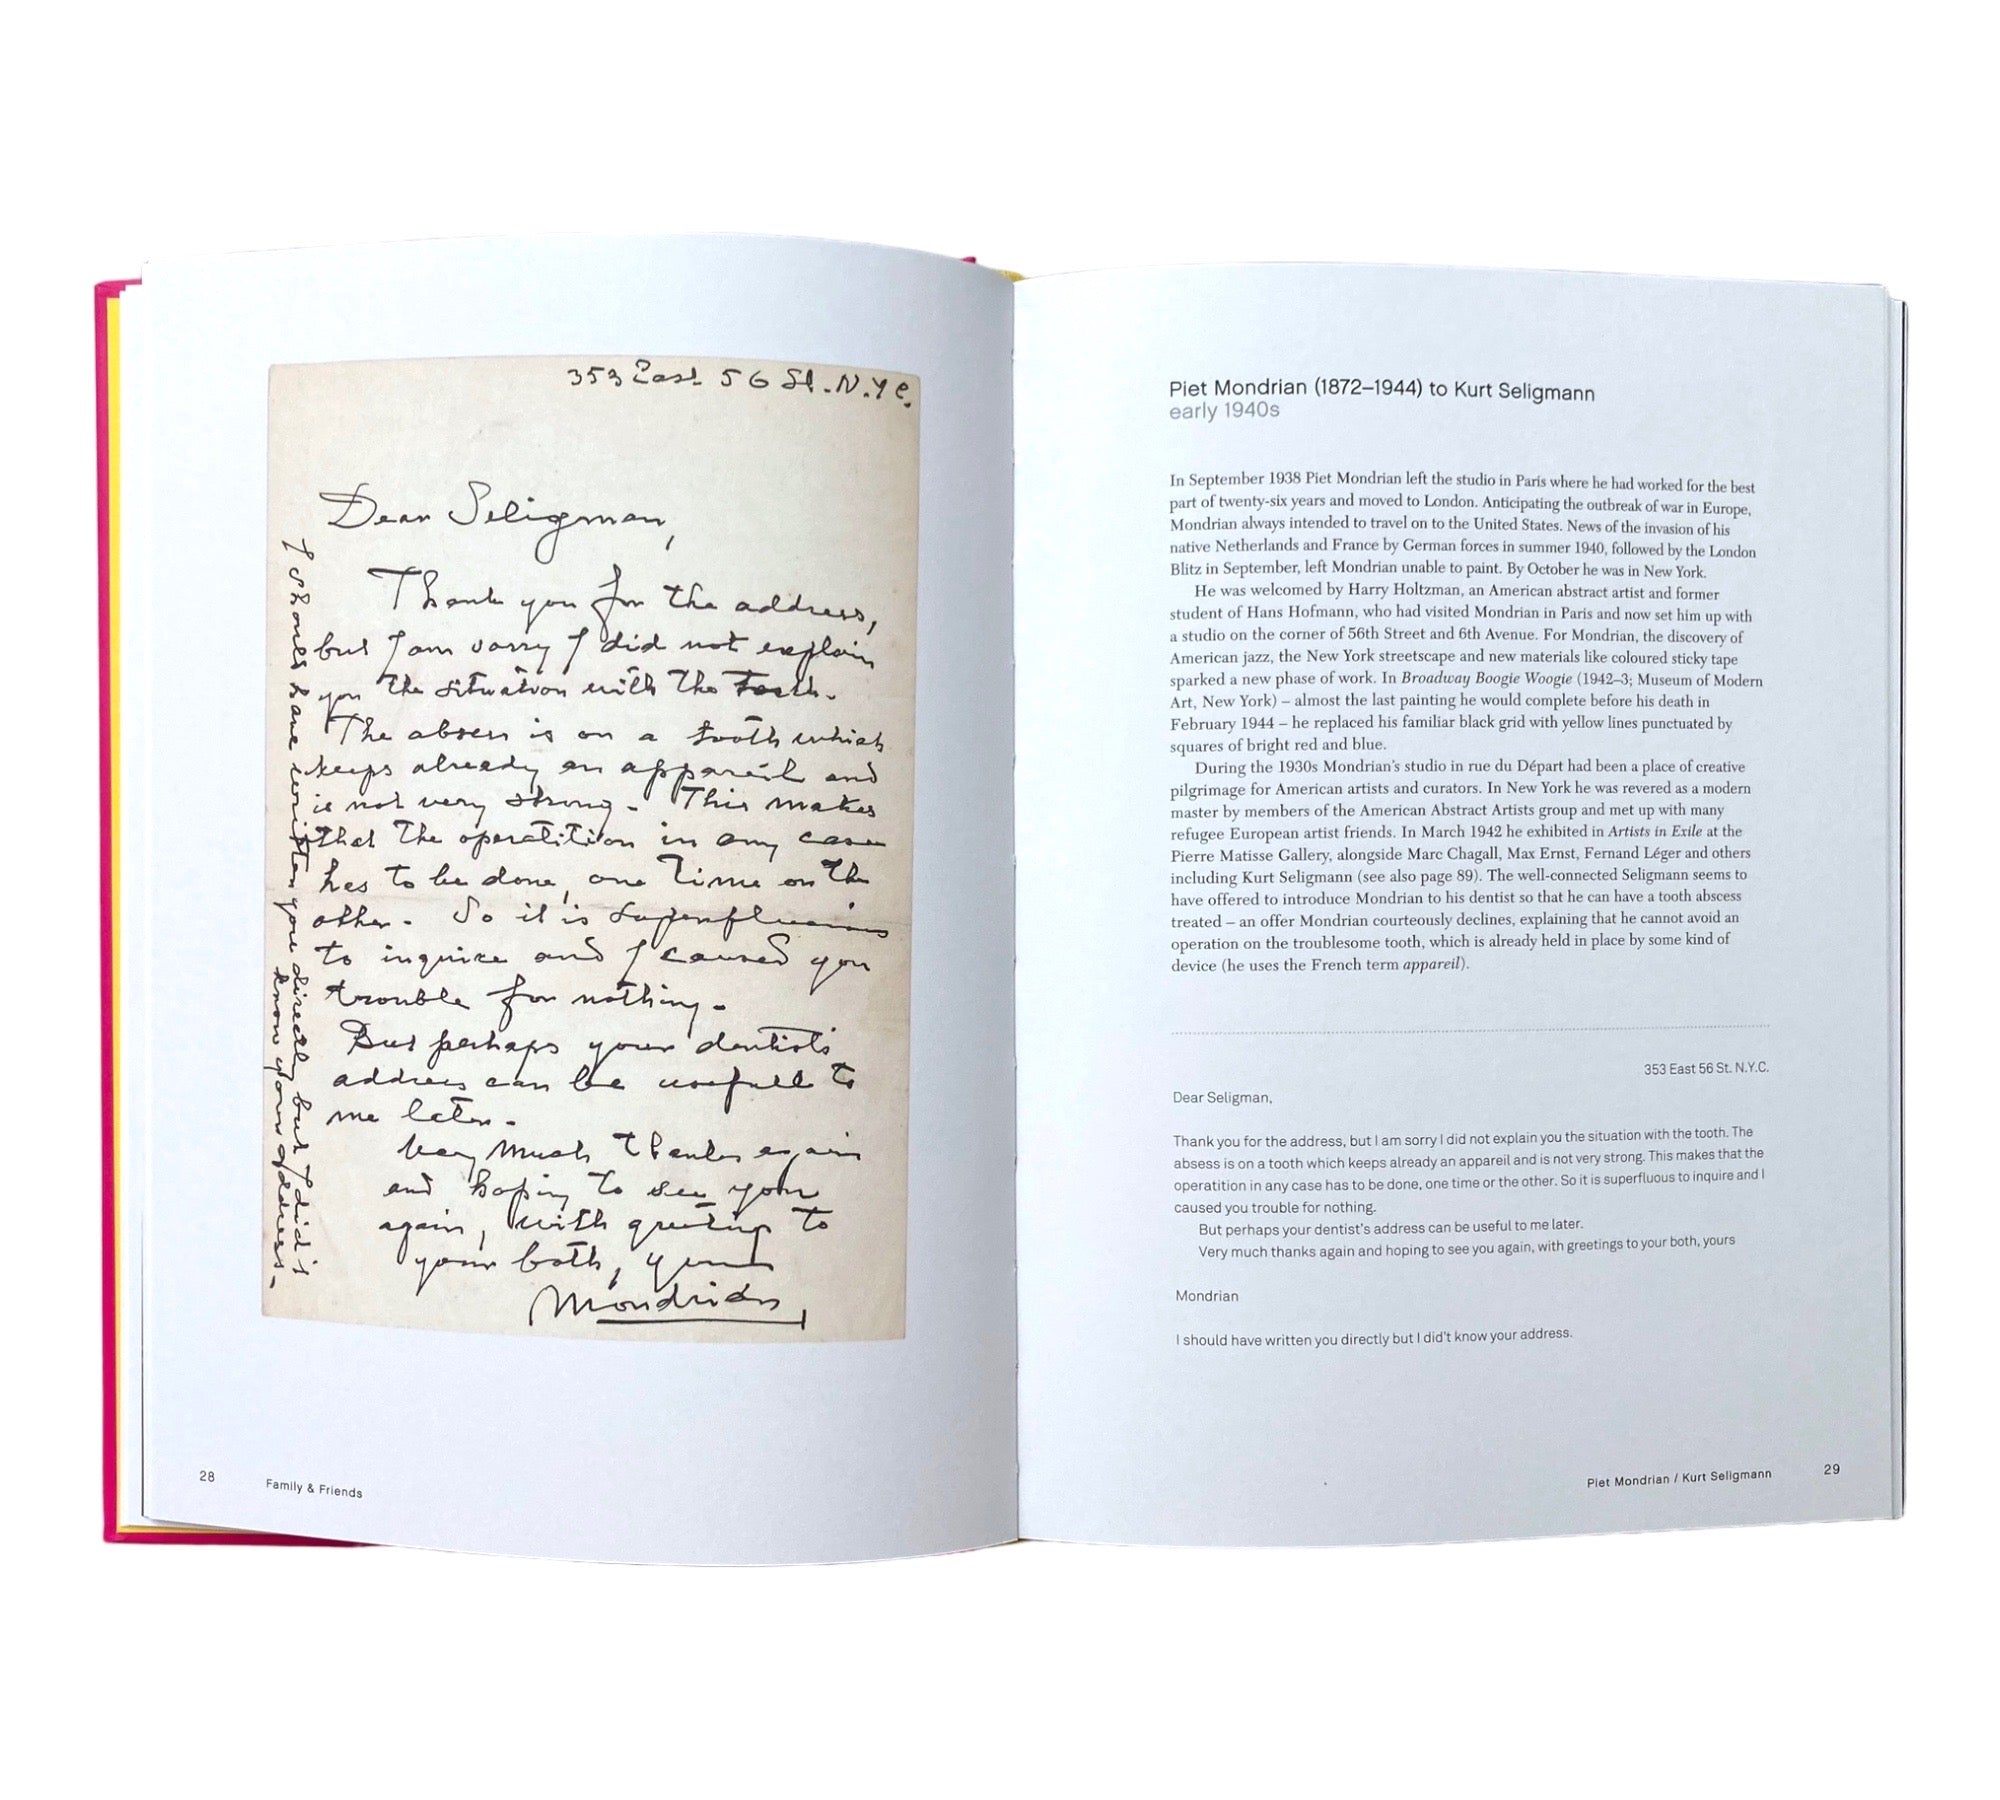 353 East 56 St. N.Y.C.
Dear Seligman,
Thank you for the address,
but I am sorry I did not explain
you the situation with the tooth.
The absess is on a tooth which
keeps already an appareil and
is not very strong. This makes
that the operatition in any case
has to be done, one time or the
other. So it is superfluous
to inquire and I caused you
trouble for nothing.
But perhaps your dentist's
address can be usefull to
me later.
Very much thanks again
and hoping to see you
again, with greetings to
your both, yours
Mondrian,
I should have written you directly but I did't
know your address.
28 Family & Friends
Piet Mondrian (1872–1944) to Kurt Seligmann
early 1940s
In September 1938 Piet Mondrian left the studio in Paris where he had worked for the best
part of twenty-six years and moved to London. Anticipating the outbreak of war in Europe,
Mondrian always intended to travel on to the United States. News of the invasion of his
native Netherlands and France by German forces in summer 1940, followed by the London
Blitz in September, left Mondrian unable to paint. By October he was in New York.
He was welcomed by Harry Holtzman, an American abstract artist and former
student of Hans Hofmann, who had visited Mondrian in Paris and now set him up with
a studio on the corner of 56th Street and 6th Avenue. For Mondrian, the discovery of
American jazz, the New York streetscape and new materials like coloured sticky tape
sparked a new phase of work. In Broadway Boogie Woogie (1942–3; Museum of Modern
Art, New York) – almost the last painting he would complete before his death in
February 1944 – he replaced his familiar black grid with yellow lines punctuated by
squares of bright red and blue.
During the 1930s Mondrian's studio in rue du Départ had been a place of creative
pilgrimage for American artists and curators. In New York he was revered as a modern
master by members of the American Abstract Artists group and met up with many
refugee European artist friends. In March 1942 he exhibited in Artists in Exile at the
Pierre Matisse Gallery, alongside Marc Chagall, Max Ernst, Fernand Léger and others
including Kurt Seligmann (see also page 89). The well-connected Seligmann seems to
have offered to introduce Mondrian to his dentist so that he can have a tooth abscess
treated – an offer Mondrian courteously declines, explaining that he cannot avoid an
operation on the troublesome tooth, which is already held in place by some kind of
device (he uses the French term appareil).
353 East 56 St. N.Y.C.
Dear Seligman,
Thank you for the address, but I am sorry I did not explain you the situation with the tooth. The
absess is on a tooth which keeps already an appareil and is not very strong. This makes that the
operatition in any case has to be done, one time or the other. So it is superfluous to inquire and I
caused you trouble for nothing.
But perhaps your dentist's address can be useful to me later.
Very much thanks again and hoping to see you again, with greetings to your both, yours
Mondrian
I should have written you directly but I did't know your address.
Piet Mondrian / Kurt Seligmann 29